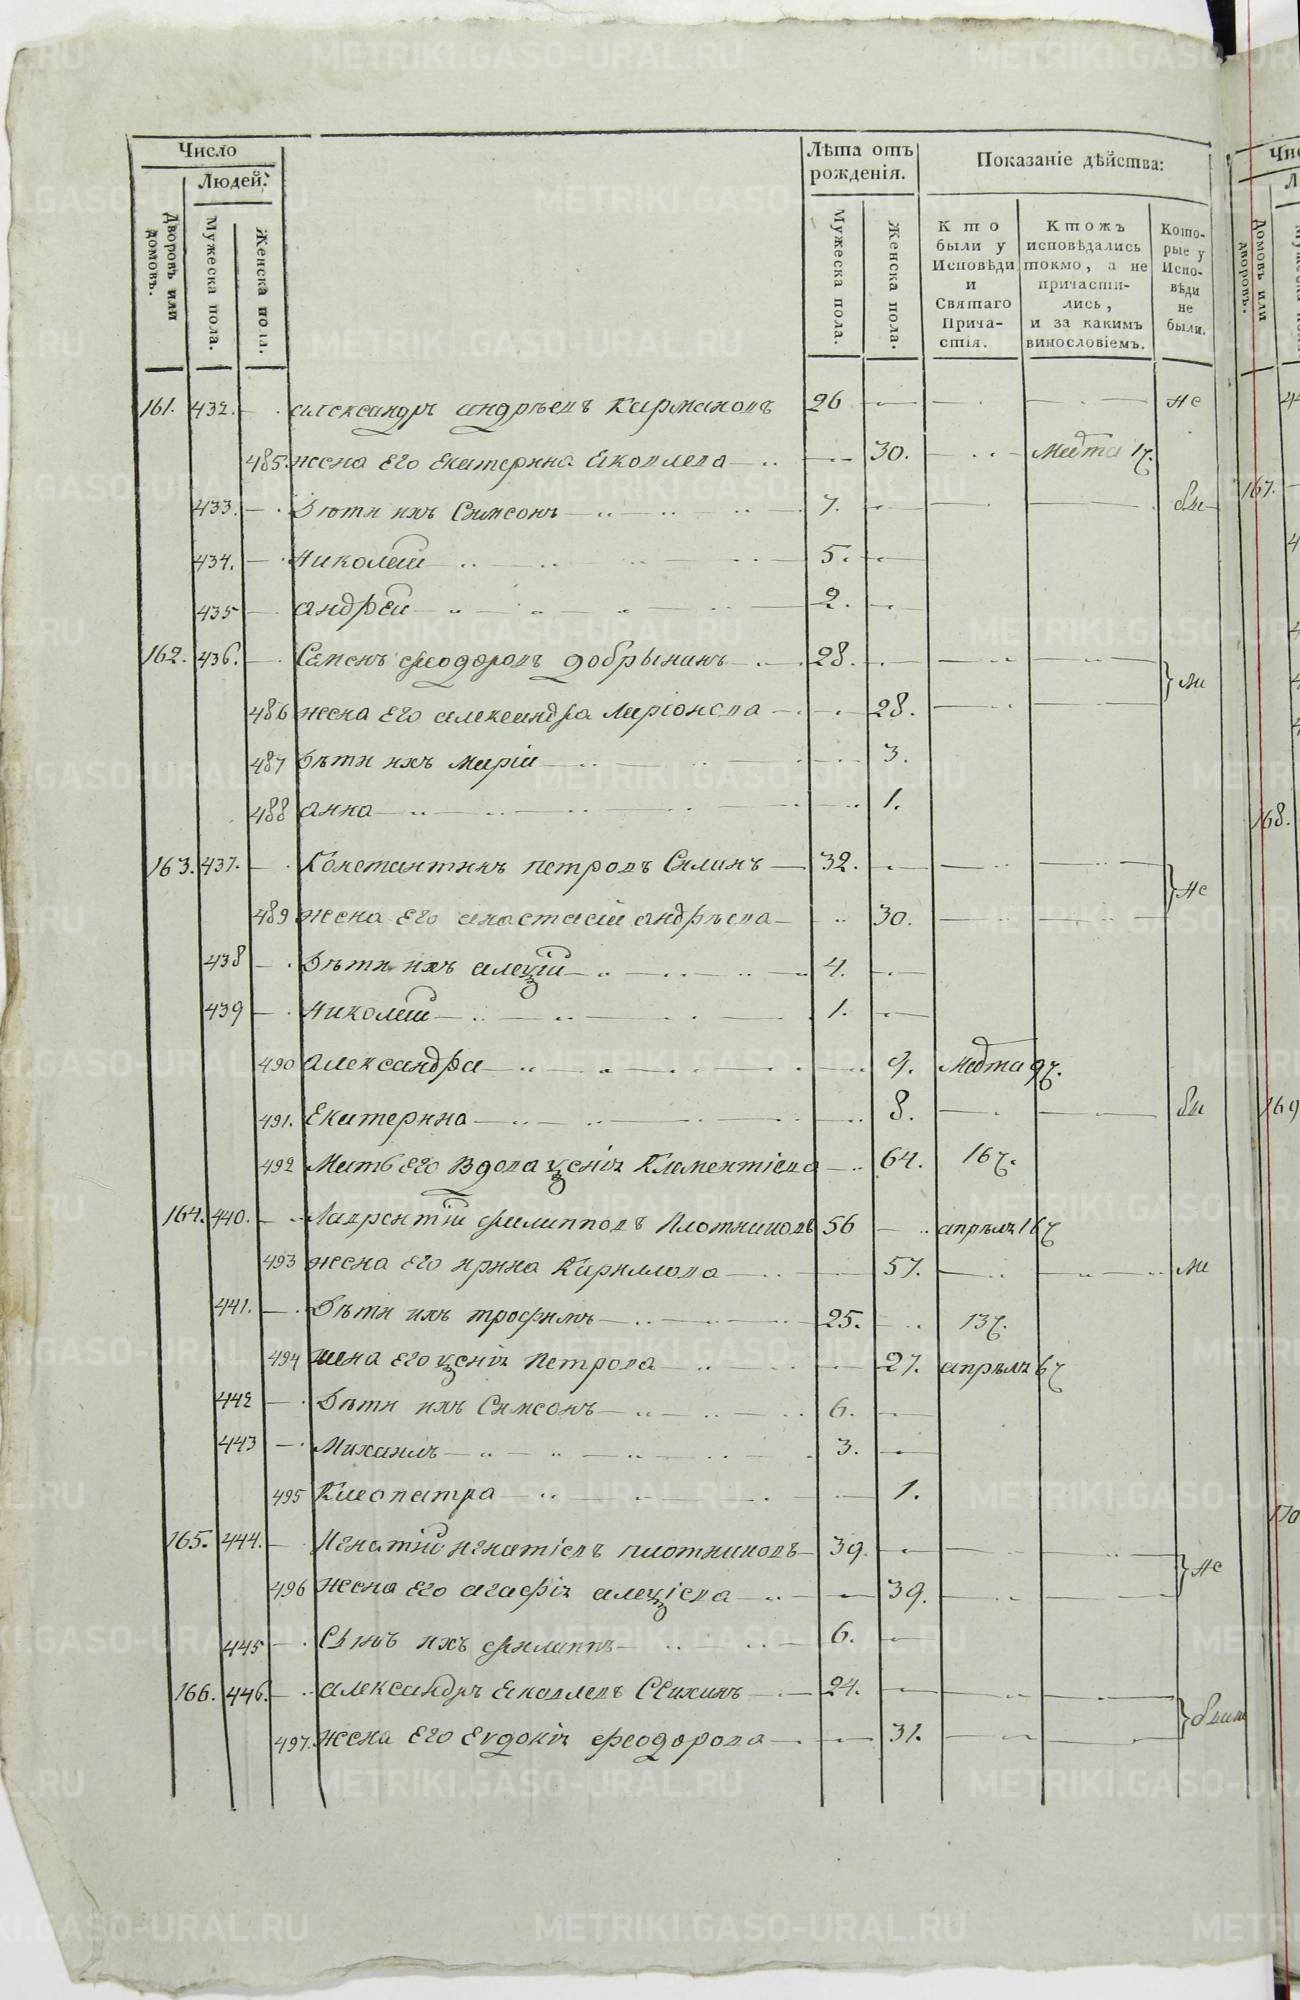 Число
Людей:
Дворовъ или домовъ.
Мужеска пола.
Женска пола.
Лѣта отъ рожденія.
Мужеска пола.
Женска пола.
Показаніе дѣйства:
Кто были у Исповѣди и Святаго Причастія.
Ктожъ исповѣдались токмо, а не причастились, и за какимъ винословіемъ.
Которые у Исповѣди не были.
161. 432. александръ андрѣевъ Кармановъ 26 не
485. жена Его Екатерина Яковлева 30. Марта 17.
433. Дѣти ихъ Симсонъ 7. бы
434. Николай 5.
435 андрей 2.
162. 436. Семенъ феодоровъ добрынинъ 28. ли
486 жена Его александра Ларіонова 28.
487 Дѣти ихъ Марія 3.
488 анна 1.
163. 437. Константинъ петровъ Силинъ 32. не
489 жена Его анастасія андрѣева 30.
438 Дѣти ихъ алеѯій 4.
439 Николай 1.
490 александра 9. Марта 9
491. Екатерина 8. бы
492 Мать Его вдова ѯенія Клементіева 64. 16
164. 440. Лаврентій филипповъ Плотниковъ 56 апрѣля 16
493 жена Его ирина Кирилова 57. ли
441. Дѣти ихъ трофимъ 25. 13
494 жена Его ѯенія Петрова 27. апрѣля 6
442 Дѣти ихъ Симсонъ 6.
443 Михаилъ 3.
495 Клеопатра 1.
165. 444. Игнатій игнатіевъ плотниковъ 39. не
496 жена Его агафія алеѯіева 39.
445 Сынъ ихъ филиппъ 6.
166. 446. александръ Яковлевъ 24. были
497. жена Его Евдокія феодорова 31.
Домовъ или дворовъ.
167.
168.
169
170
METRIKI.GASO-URAL.RU